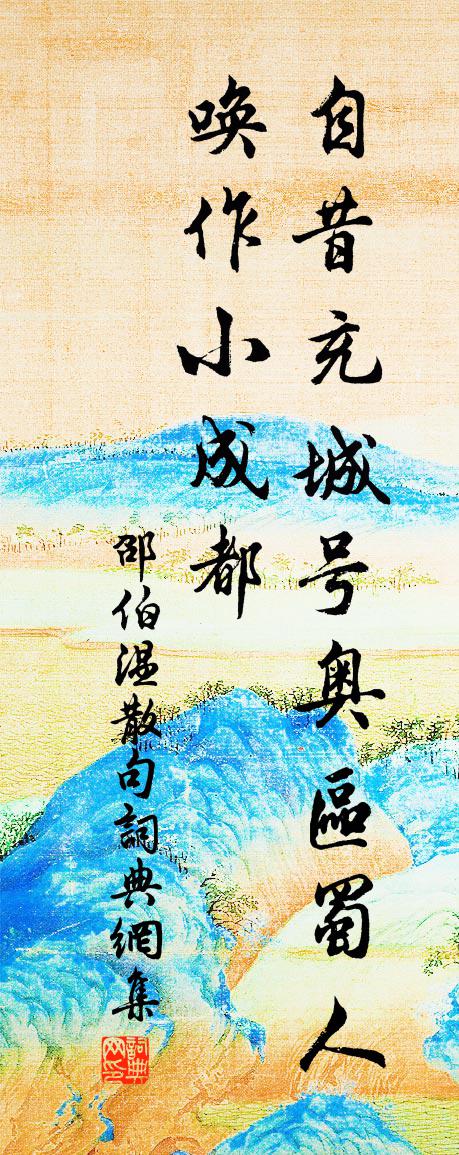 自昔充城号奥區蜀人
唤作小成都
邵伯温散句詞典網集